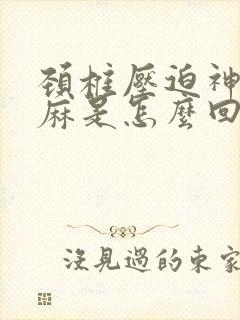 頚椎壓迫神
麻是怎麼回
沒見過的東家